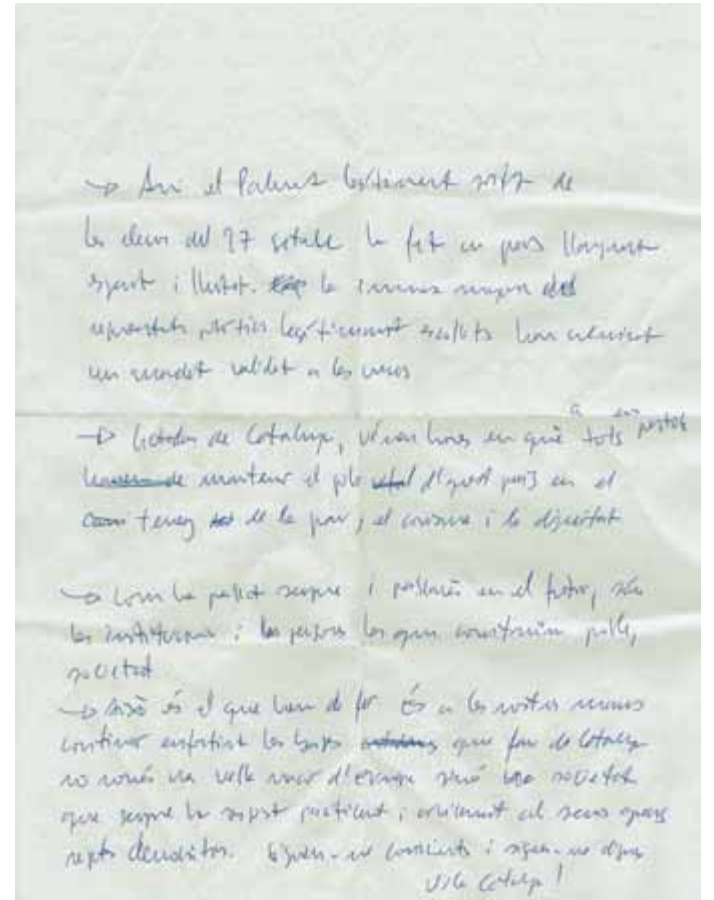 → Avui el Parlament legítimament sorgit de
les eleccions del 27 setembre ha fet un pas llargament
esperat i lluitat. la immensa majoria dels
representants polítics legítimament escollits han culminat
un mandat validat a les urnes
→ Ciutadans de Catalunya, vénen hores en què a tots ens pertoca
mantenir el pols d'aquest país en el
terreny de la pau, el civisme i la dignitat
→ Com ha passat sempre i passarà en el futur, són
les institucions i les persones les que construïm poble,
societat
→ Això és el que hem de fer. És a les nostres mans
continuar enfortint les bases que fan de Catalunya
no només un vell racó d'Europa sinó una societat
que sempre ha sigut i als seus grans
reptes democràtics. Siguem-ne conscients i siguem-ne dignes
Visca Catalunya!